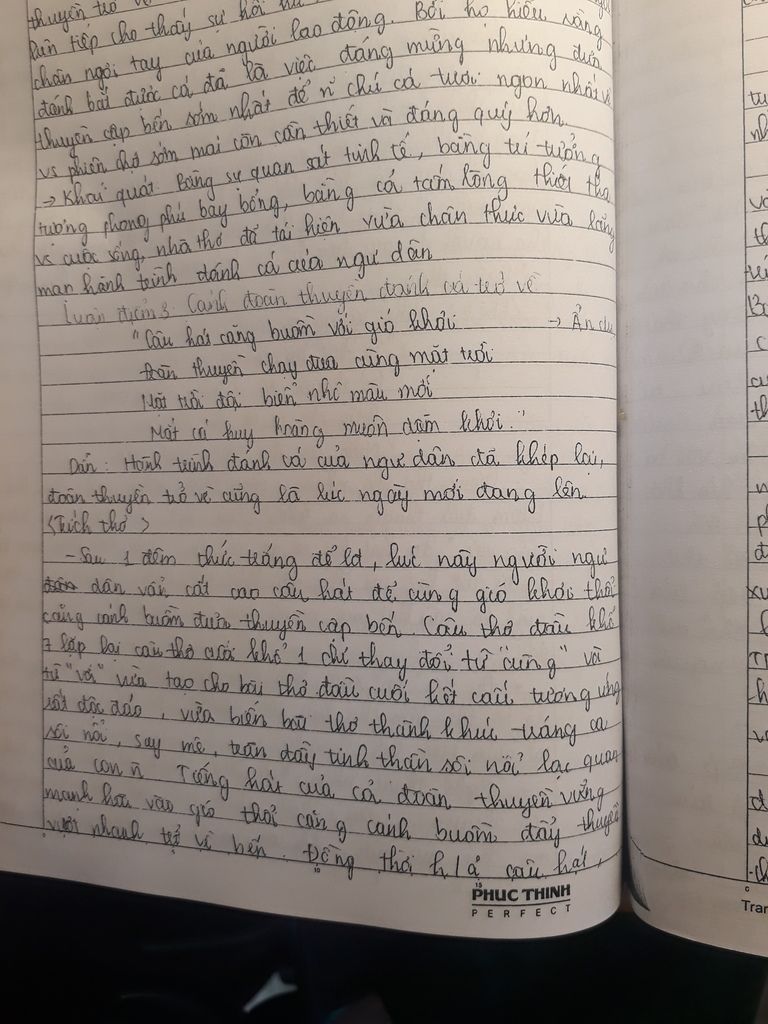 thuyền trở về
liên tiếp cho thấy sự hối hả
chân ngơi tay của người lao động. Bởi họ hiểu rằng
đánh bắt được cá đã là việc đáng mừng nhưng đưa
thuyền cập bến sớm nhất để n chú cá tươi ngon nhất về
vs phiên chợ sớm mai còn cần thiết và đáng quý hơn
→ Khái quát: Bằng sự quan sát tinh tế, bằng trí tưởng
tượng phong phú bay bổng, bằng cả tấm lòng thiết tha
vs cuộc sống, nhà thơ đã tái hiện vừa chân thực vừa lãng
mạn hành trình đánh cá của ngư dân
Luận điểm 3: Cảnh đoàn thuyền đánh cá trở về
"Câu hát căng buồm với gió khơi → Ẩn dụ
đoàn thuyền chạy đua cùng mặt trời
Mặt trời đội biển nhô màu mới
Mắt cá huy hoàng muôn dặm khơi."
Dẫn: Hành trình đánh cá của ngư dân đã khép lại,
đoàn thuyền trở về cũng là lúc ngày mới đang lên
<Trích thơ>
- Sau 1 đêm thức trắng để lđ, lúc này người ngư
dân vẫn cất cao câu hát để cùng gió khơi thổi
căng cánh buồm đưa thuyền cập bến. Câu thơ đầu khổ
7 lặp lại câu thơ cuối khổ 1 chỉ thay đổi từ "cùng" và
từ "với" vừa tạo cho bài thơ đầu cuối kết cấu tương ứng
rất độc đáo, vừa biến bài thơ thành khúc tráng ca
sôi nổi, say mê, tràn đầy tinh thần sôi nổi lạc quan
của con n Tiếng hát của cả đoàn thuyền vững
mạnh hòa vào gió thổi căng cánh buồm đẩy thuyền
vượt nhanh trở về bến. Đồng thời h/ả câu hát,
PHUC THINH
PERFECT
Tran